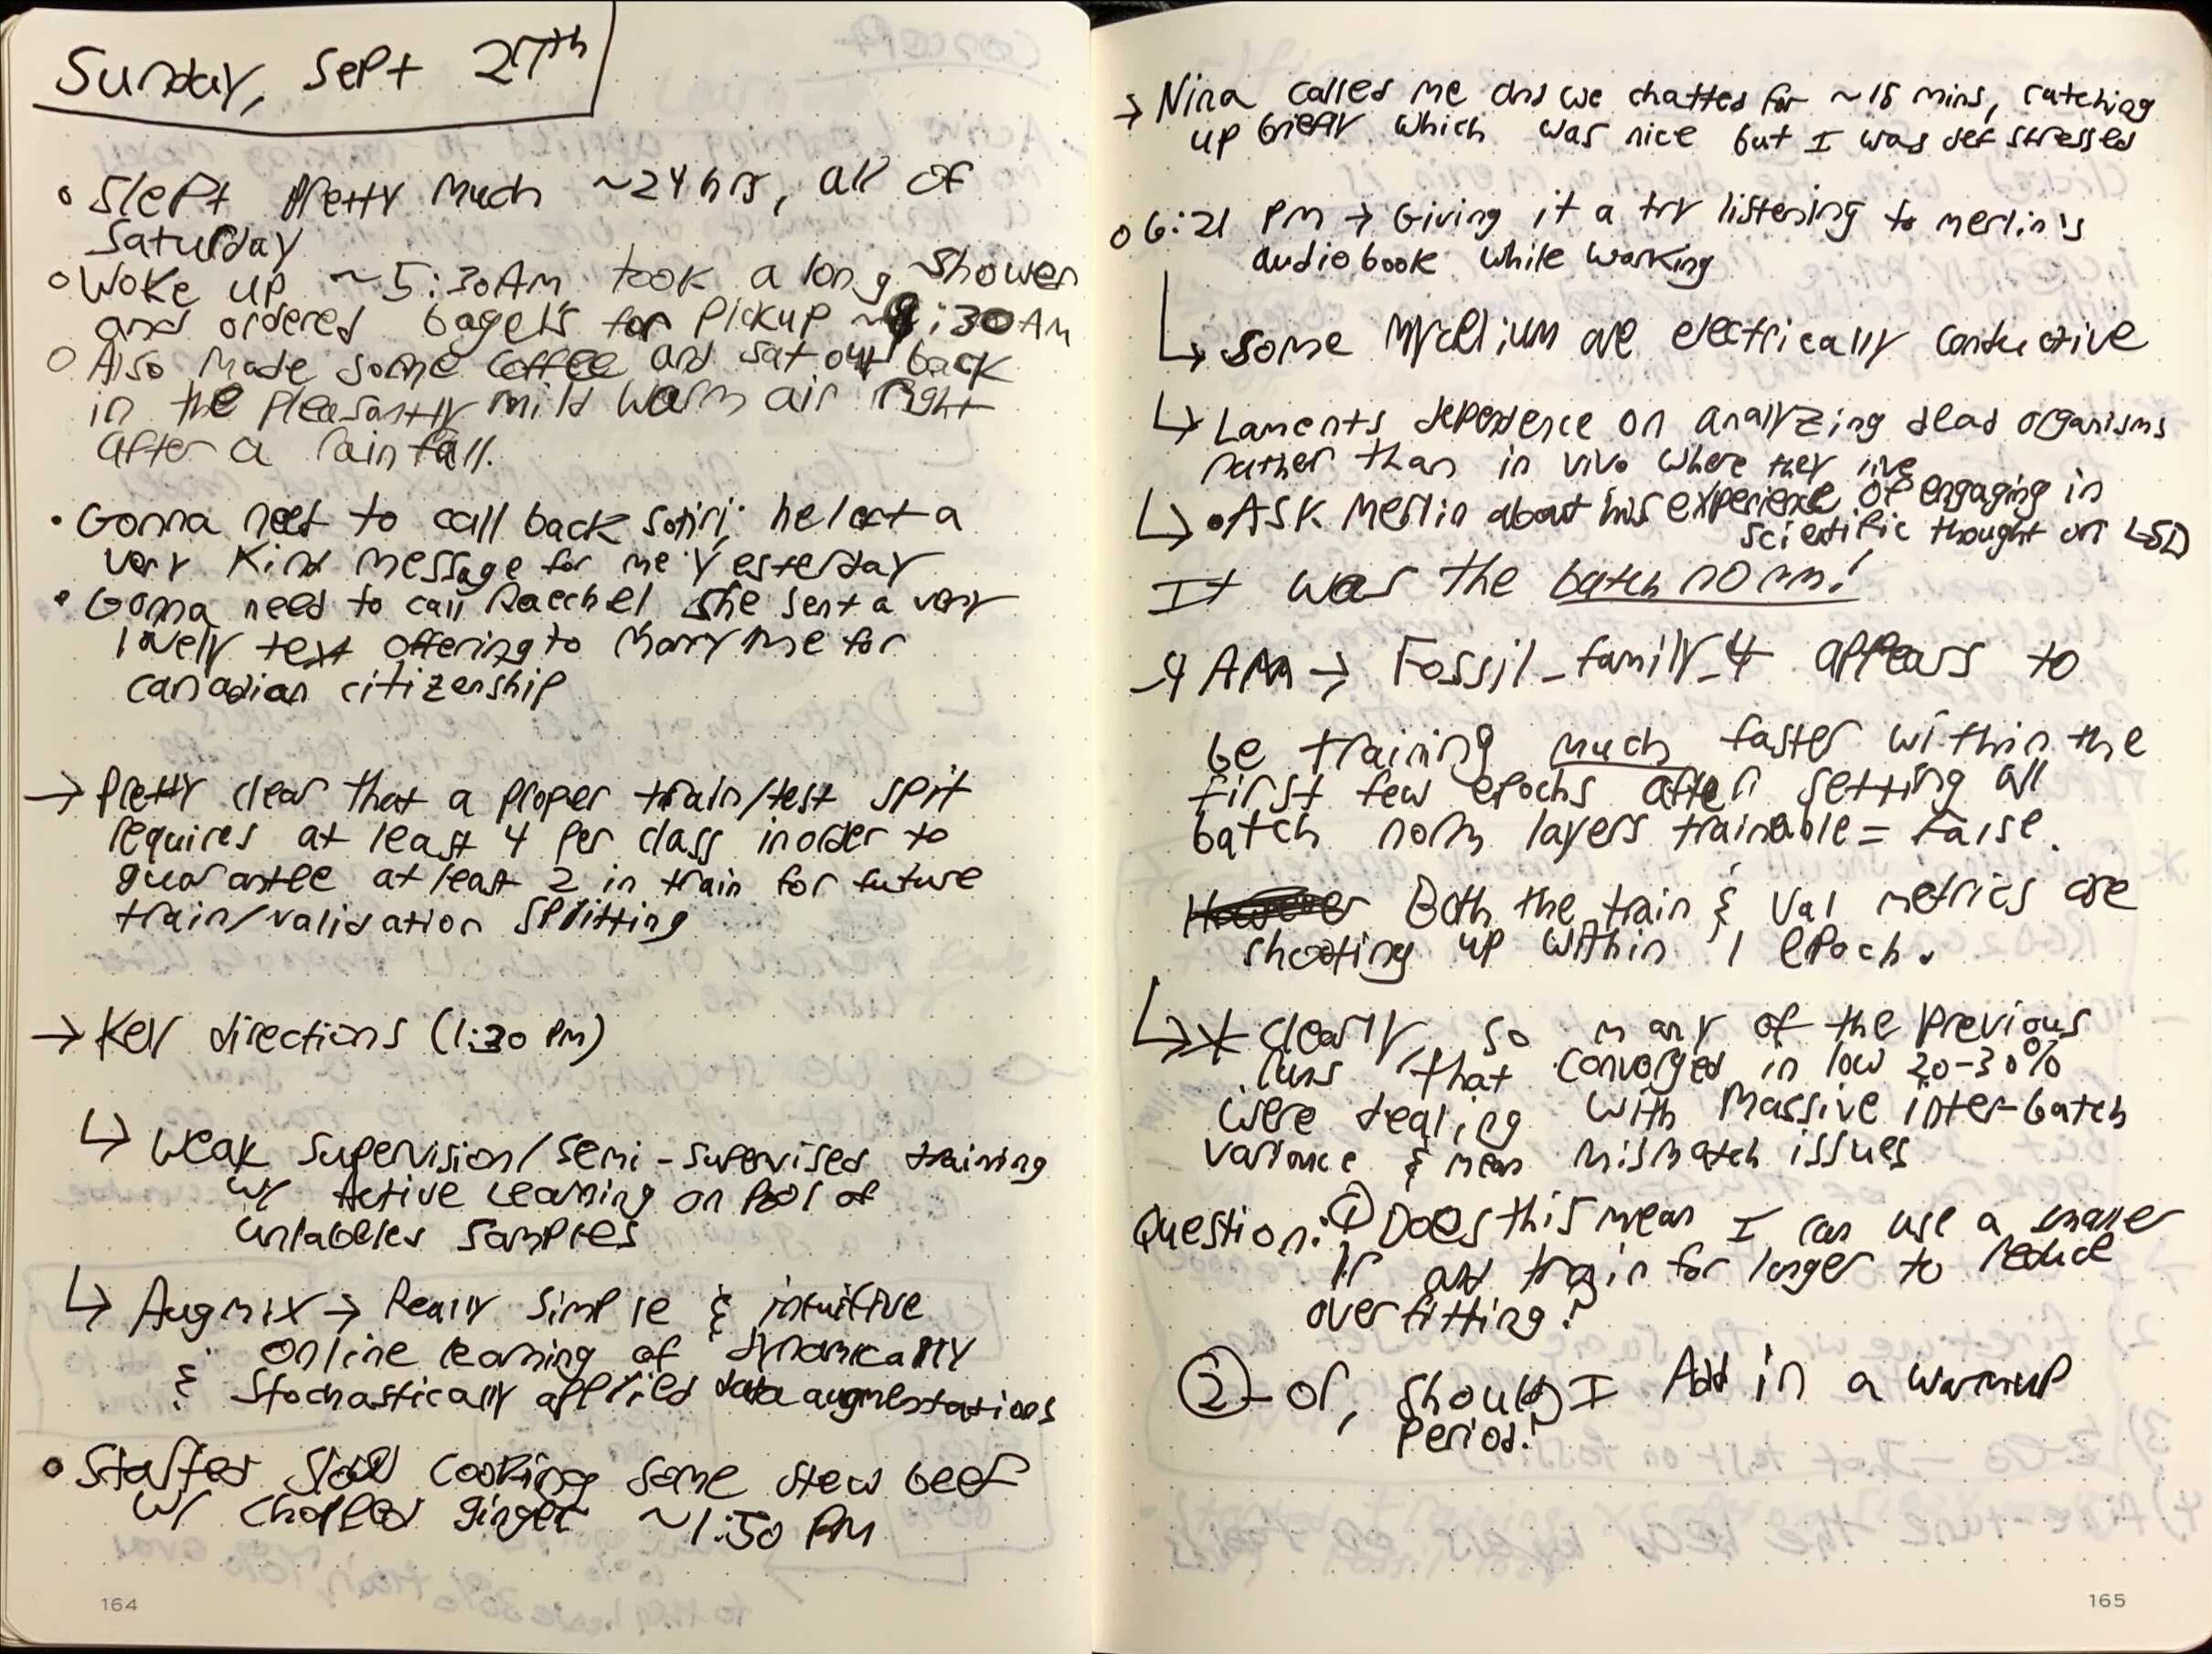 Sunday, Sept 27th
o Slept pretty much ~24 hrs, all of
Saturday
o Woke up ~5:30AM took a long shower
and ordered bagels for pickup ~8:30AM
o Also made some coffee and sat out back
in the pleasantly mild warm air right
after a rainfall.
• Gonna need to call back Sotiri; he left a
very kind message for me yesterday
• Gonna need to call Raechel she sent a very
lovely text offering to marry me for
canadian citizenship
→ Pretty clear that a proper train/test split
requires at least 4 per class in order to
guarantee at least 2 in train for future
train/validation splitting
→ Key directions (1:30 PM)
↳ Weak supervision/semi-supervised training
w/ Active Learning on Pool of
unlabeled samples
↳ Augmix → Really simple & intuitive
online learning of dynamically
& stochastically applied data augmentations
• Started slow cooking some stew beef
w/ chopped ginger ~1:50 PM
164
→ Nina called me and we chatted for ~15 mins, catching
up briefly which was nice but I was def stressed
o 6:21 PM → Giving it a try listening to merlin's
audiobook while working
↳ Some Mycelium are electrically conductive
↳ Laments dependence on analyzing dead organisms
rather than in vivo where they live
↳ • ASK Merlin about his experience of engaging in
scientific thought on LSD
It was the batch norm!
-4 AM → Fossil_family_4 appears to
be training much faster within the
first few epochs after setting all
batch norm layers trainable = False.
However Both the train & val metrics are
shooting up within 1 epoch.
↳ * Clearly, so many of the previous
runs that converged in low 20-30%
were dealing with massive inter-batch
variance & mean mismatch issues
Question: ① Does this mean I can use a smaller
lr and train for longer to reduce
overfitting?
② - or, should I Add in a warmup
period?
165